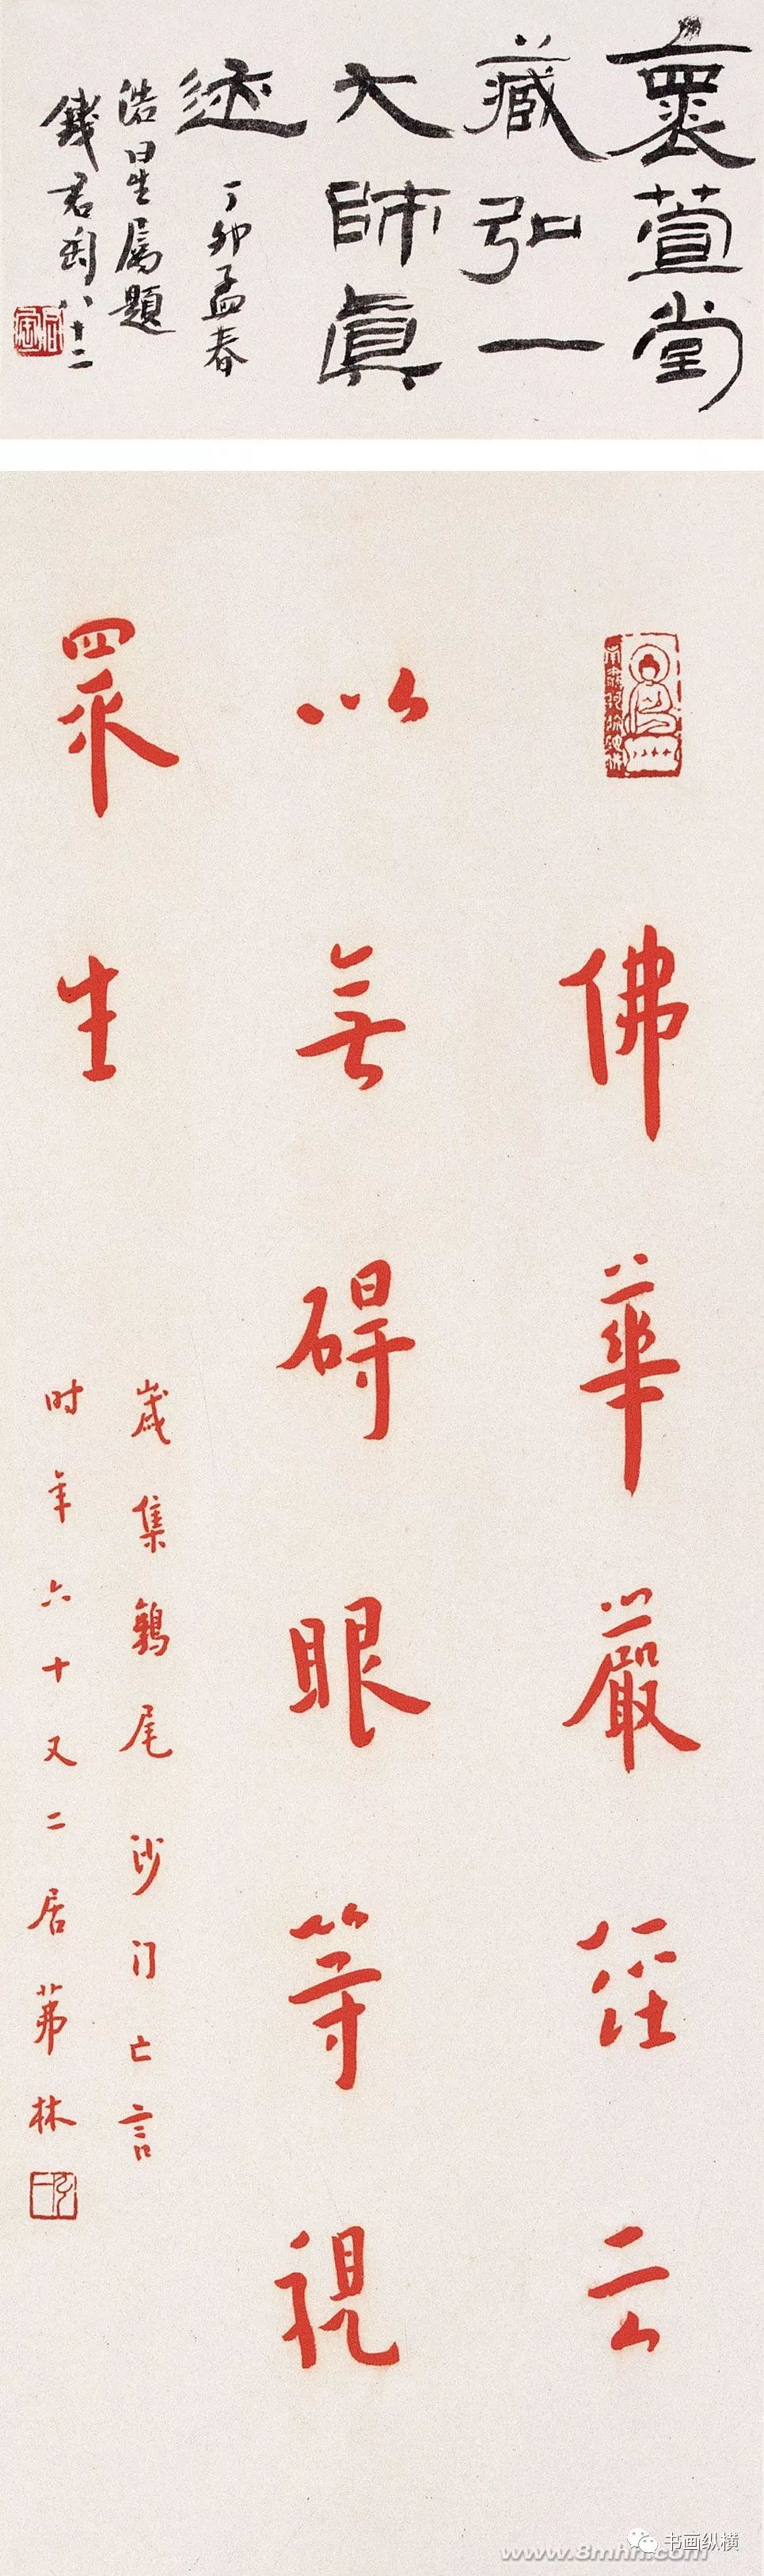 裹萱堂
藏弘一
大師真
迹
丁卯孟春
浩星屬題
錢君匋八十二
佛華嚴經云
以無碍眼等視
眾生
歲集鶉尾沙门亡言
时年六十又二居茀林
书画纵横
www.8mhh.com